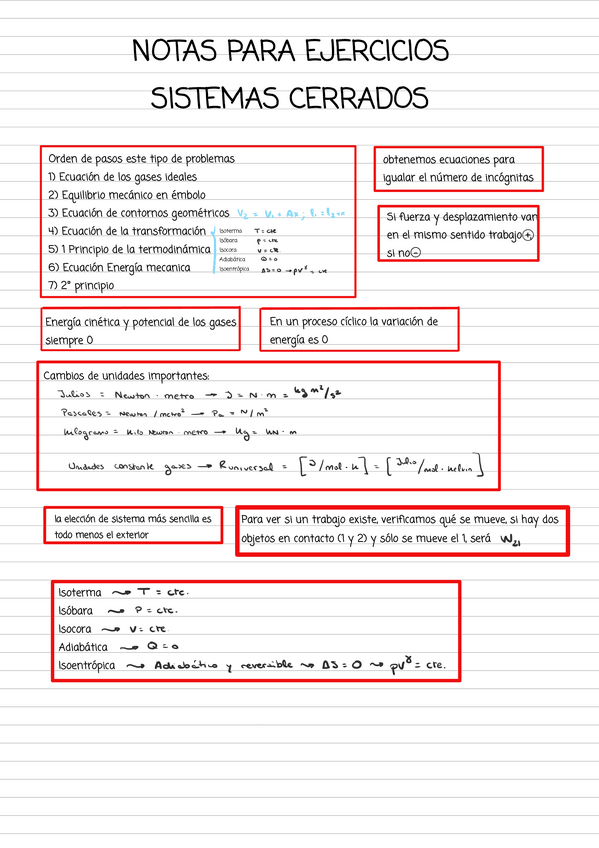 NOTAS PARA EJERCICIOS
SISTEMAS CERRADOS
Orden de pasos este tipo de problemas
1) Ecuación de los gases ideales
2) Equilibrio mecánico en émbolo
3) Ecuación de contornos geométricos V₂ = V₁ + Ax ;
4) Ecuación de la transformación
Isoterma T = cte
Isóbara p = cte
Isocora v = cte
Adiabática Q = 0
Isoentrópica ΔS = 0 → pv^γ = cte
5) 1 Principio de la termodinámica
6) Ecuación Energía mecanica
7) 2º principio
obtenemos ecuaciones para
igualar el número de incógnitas
Si fuerza y desplazamiento van
en el mismo sentido trabajo ⊕
si no ⊖
Energía cinética y potencial de los gases
siempre 0
En un proceso cíclico la variación de
energía es 0
Cambios de unidades importantes:
Julios = Newton · metro → J = N · m = kg m²/s²
Pascales = Newton / metro² → Pa = N/m²
Kilogramo = Kilo Newton · metro → Kg = KN · m
Unidades constante gases → R universal = [J/mol · K] = [Julio/mol · Kelvin]
la elección de sistema más sencilla es
todo menos el exterior
Para ver si un trabajo existe, verificamos qué se mueve, si hay dos
objetos en contacto (1 y 2) y sólo se mueve el 1, será W₂₁
Isoterma → T = cte.
Isóbara → P = cte.
Isocora → V = cte
Adiabática → Q = 0
Isoentrópica → Adiabático y reversible → ΔS = 0 → pV^γ = cte.